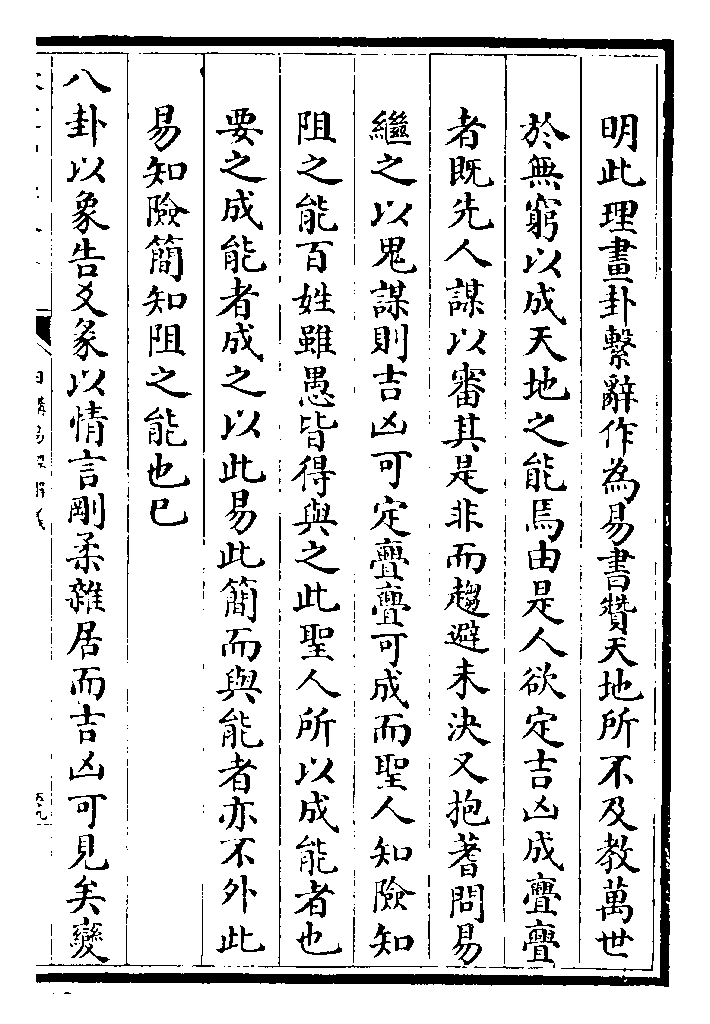 明此理畫卦繫辭作為易書贊天地所不及教萬世
於無窮以成天地之能焉由是人欲定吉凶成亹亹
者既先人謀以審其是非而趨避未決又抱蓍問易
繼之以鬼謀則吉凶可定亹亹可成而聖人知險知
阻之能百姓雖愚皆得與之此聖人所以成能者也
要之成能者成之以此易此簡而與能者亦不外此
易知險簡知阻之能也已
八卦以象告爻彖以情言剛柔雜居而吉凶可見矣變
日講易經解義